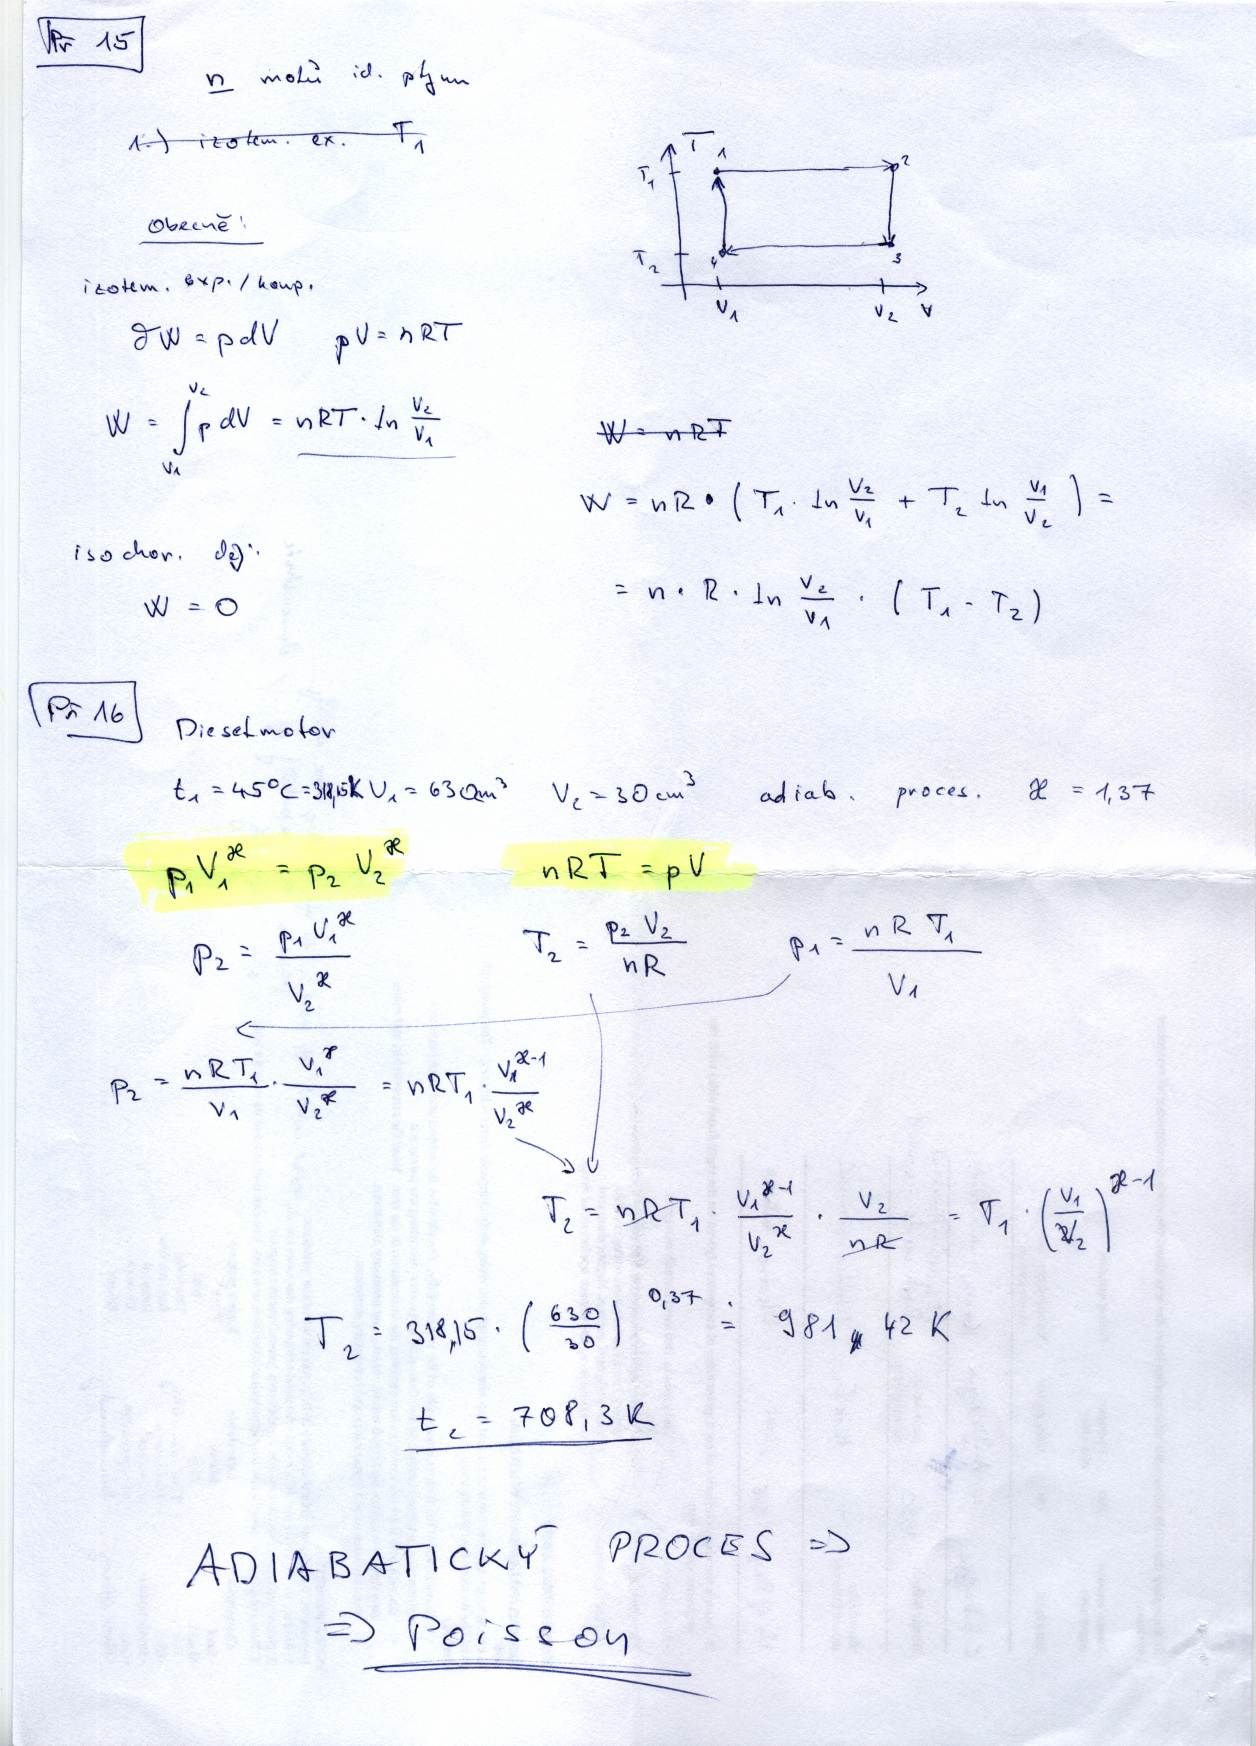 Př 15
n molů id. plynu
1.) izotem. ex. T₁
T
T₁ 1 2
T₂ 4 3
V₁ V₂ V
Obecně:
izotem. exp./komp.
∂W = pdV pV = nRT
W = ∫_{V₁}^{V₂} p dV = nRT · ln V₂/V₁
W = nRT
W = nR · (T₁ · ln V₂/V₁ + T₂ ln V₁/V₂) =
= n · R · ln V₂/V₁ · (T₁ - T₂)
isochor. děj:
W = 0
Př 16
Dieselmotor
t₁ = 45°C = 318,15K V₁ = 630cm³ V₂ = 30cm³ adiab. proces. ϰ = 1,37
p₁V₁^ϰ = p₂V₂^ϰ nRT = pV
p₂ = p₁V₁^ϰ / V₂^ϰ T₂ = p₂V₂ / nR p₁ = nRT₁ / V₁
p₂ = nRT₁/V₁ · V₁^ϰ/V₂^ϰ = nRT₁ · V₁^ϰ⁻¹/V₂^ϰ
T₂ = nRT₁ · V₁^ϰ⁻¹/V₂^ϰ · V₂/nR = T₁ · (V₁/V₂)^ϰ⁻¹
T₂ = 318,15 · (630/30)^0,37 ≐ 981,42 K
t₂ = 708,3K
ADIABATICKÝ PROCES ⇒
⇒ Poisson